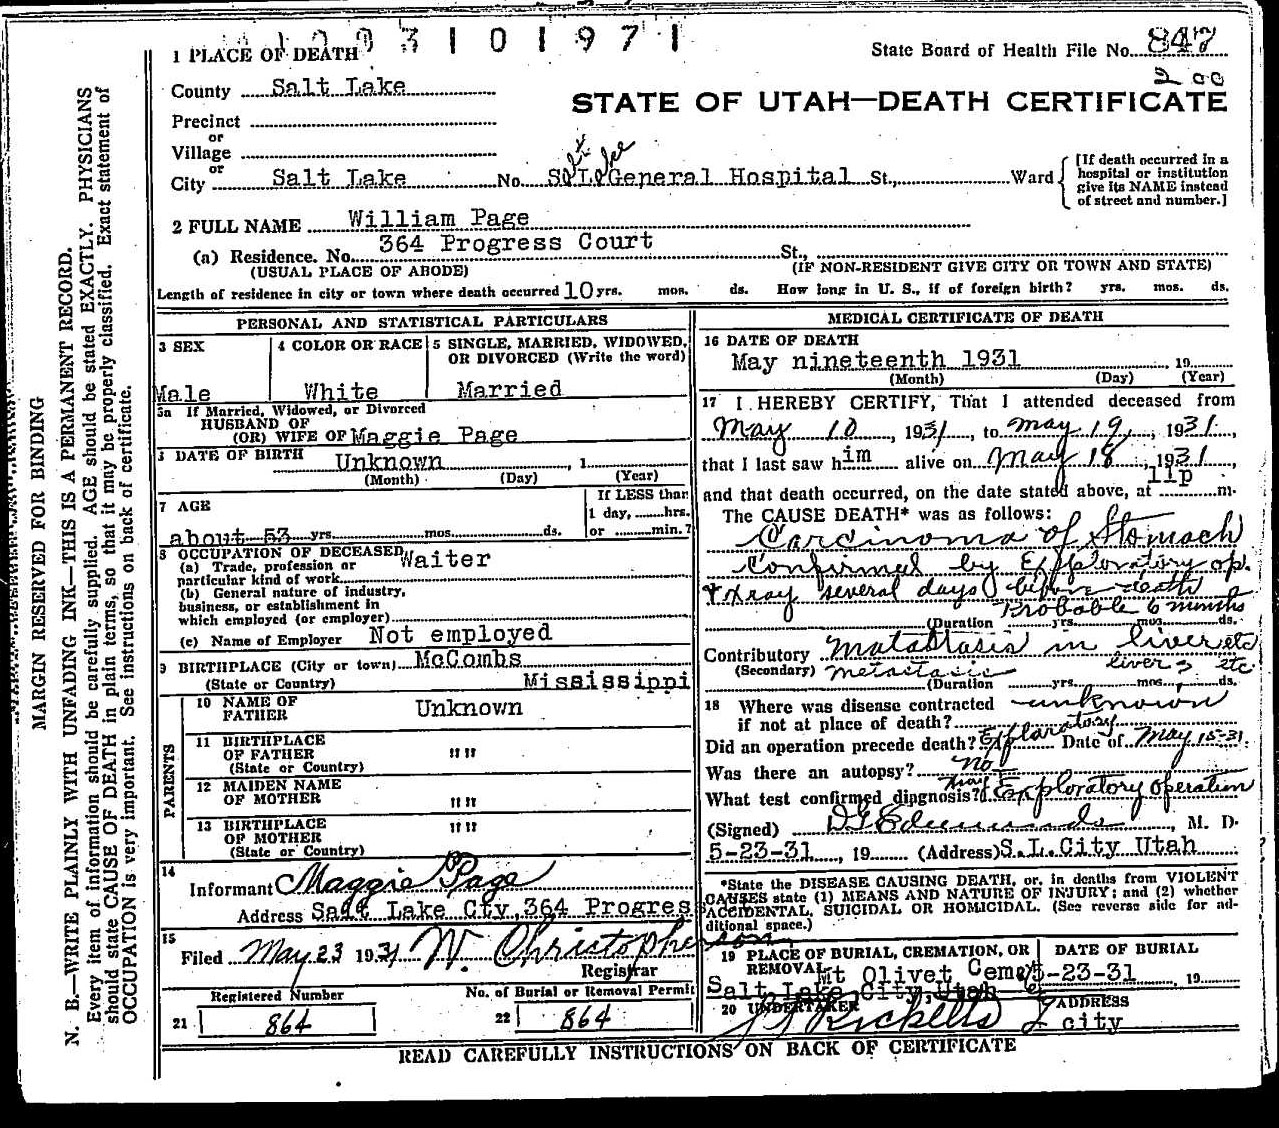 1003101971
1 PLACE OF DEATH
State Board of Health File No. 847
200
County Salt Lake
STATE OF UTAH—DEATH CERTIFICATE
Precinct
or
Village
or
City Salt Lake No. S L General Hospital St., Ward
Salt Lake
[If death occurred in a
hospital or institution
give its NAME instead
of street and number.]
2 FULL NAME William Page
(a) Residence. No. 364 Progress Court St.,
(USUAL PLACE OF ABODE) (IF NON-RESIDENT GIVE CITY OR TOWN AND STATE)
Length of residence in city or town where death occurred 10 yrs. mos. ds. How long in U. S., if of foreign birth? yrs. mos. ds.
PERSONAL AND STATISTICAL PARTICULARS
3 SEX
Male
4 COLOR OR RACE
White
5 SINGLE, MARRIED, WIDOWED,
OR DIVORCED (Write the word)
Married
5a If Married, Widowed, or Divorced
HUSBAND OF
(OR) WIFE OF Maggie Page
DATE OF BIRTH Unknown , 1
(Month) (Day) (Year)
7 AGE
about 53 yrs. mos. ds.
If LESS than
1 day, hrs.
or min.?
8 OCCUPATION OF DECEASED
(a) Trade, profession or Waiter
particular kind of work
(b) General nature of industry,
business, or establishment in
which employed (or employer)
(c) Name of Employer Not employed
9 BIRTHPLACE (City or town) McCombs
(State or Country) Mississippi
PARENTS
10 NAME OF
FATHER Unknown
11 BIRTHPLACE
OF FATHER " "
(State or Country)
12 MAIDEN NAME
OF MOTHER " "
13 BIRTHPLACE " "
OF MOTHER
(State or Country)
14
Informant Maggie Page
Address Salt Lake Cty, 364 Progress
15
Filed May 23 1931 W. Christopherson
Registrar
Registered Number
21 864
No. of Burial or Removal Permit
22 864
MEDICAL CERTIFICATE OF DEATH
16 DATE OF DEATH
May nineteenth 1931 , 19
(Month) (Day) (Year)
17 I HEREBY CERTIFY, That I attended deceased from
May 10 , 1931, to May 19, 1931,
that I last saw him alive on May 18 , 1931,
and that death occurred, on the date stated above, at 11p m.
The CAUSE DEATH* was as follows:
Carcinoma of Stomach
Confirmed by Exploratory op.
+ Xray several days before death
Probable 6 months
(Duration yrs. mos. ds.
Contributory Matastasis in liver etc
(Secondary) metastasis liver etc
(Duration yrs. mos. ds.
18 Where was disease contracted
if not at place of death? unknown
Did an operation precede death? Exploratory Date of May 15-31.
Was there an autopsy? No
What test confirmed diagnosis? Xray & Exploratory operation
(Signed) D G Edmunds , M. D.
5-23-31 , 19 (Address) S.L.City Utah
*State the DISEASE CAUSING DEATH, or, in deaths from VIOLENT
CAUSES state (1) MEANS AND NATURE OF INJURY; and (2) whether
ACCIDENTAL, SUICIDAL OR HOMICIDAL. (See reverse side for ad-
ditional space.)
19 PLACE OF BURIAL, CREMATION, OR
REMOVAL Mt Olivet Cemey
Salt Lake City, Utah
DATE OF BURIAL
5-23-31 19
20 UNDERTAKER
Ricketts
ADDRESS
city
READ CAREFULLY INSTRUCTIONS ON BACK OF CERTIFICATE
MARGIN RESERVED FOR BINDING
N. B.—WRITE PLAINLY WITH UNFADING INK—THIS IS A PERMANENT RECORD.
Every item of information should be carefully supplied. AGE should be stated EXACTLY. PHYSICIANS
should state CAUSE OF DEATH in plain terms, so that it may be properly classified. Exact statement of
OCCUPATION is very important. See instructions on back of certificate.